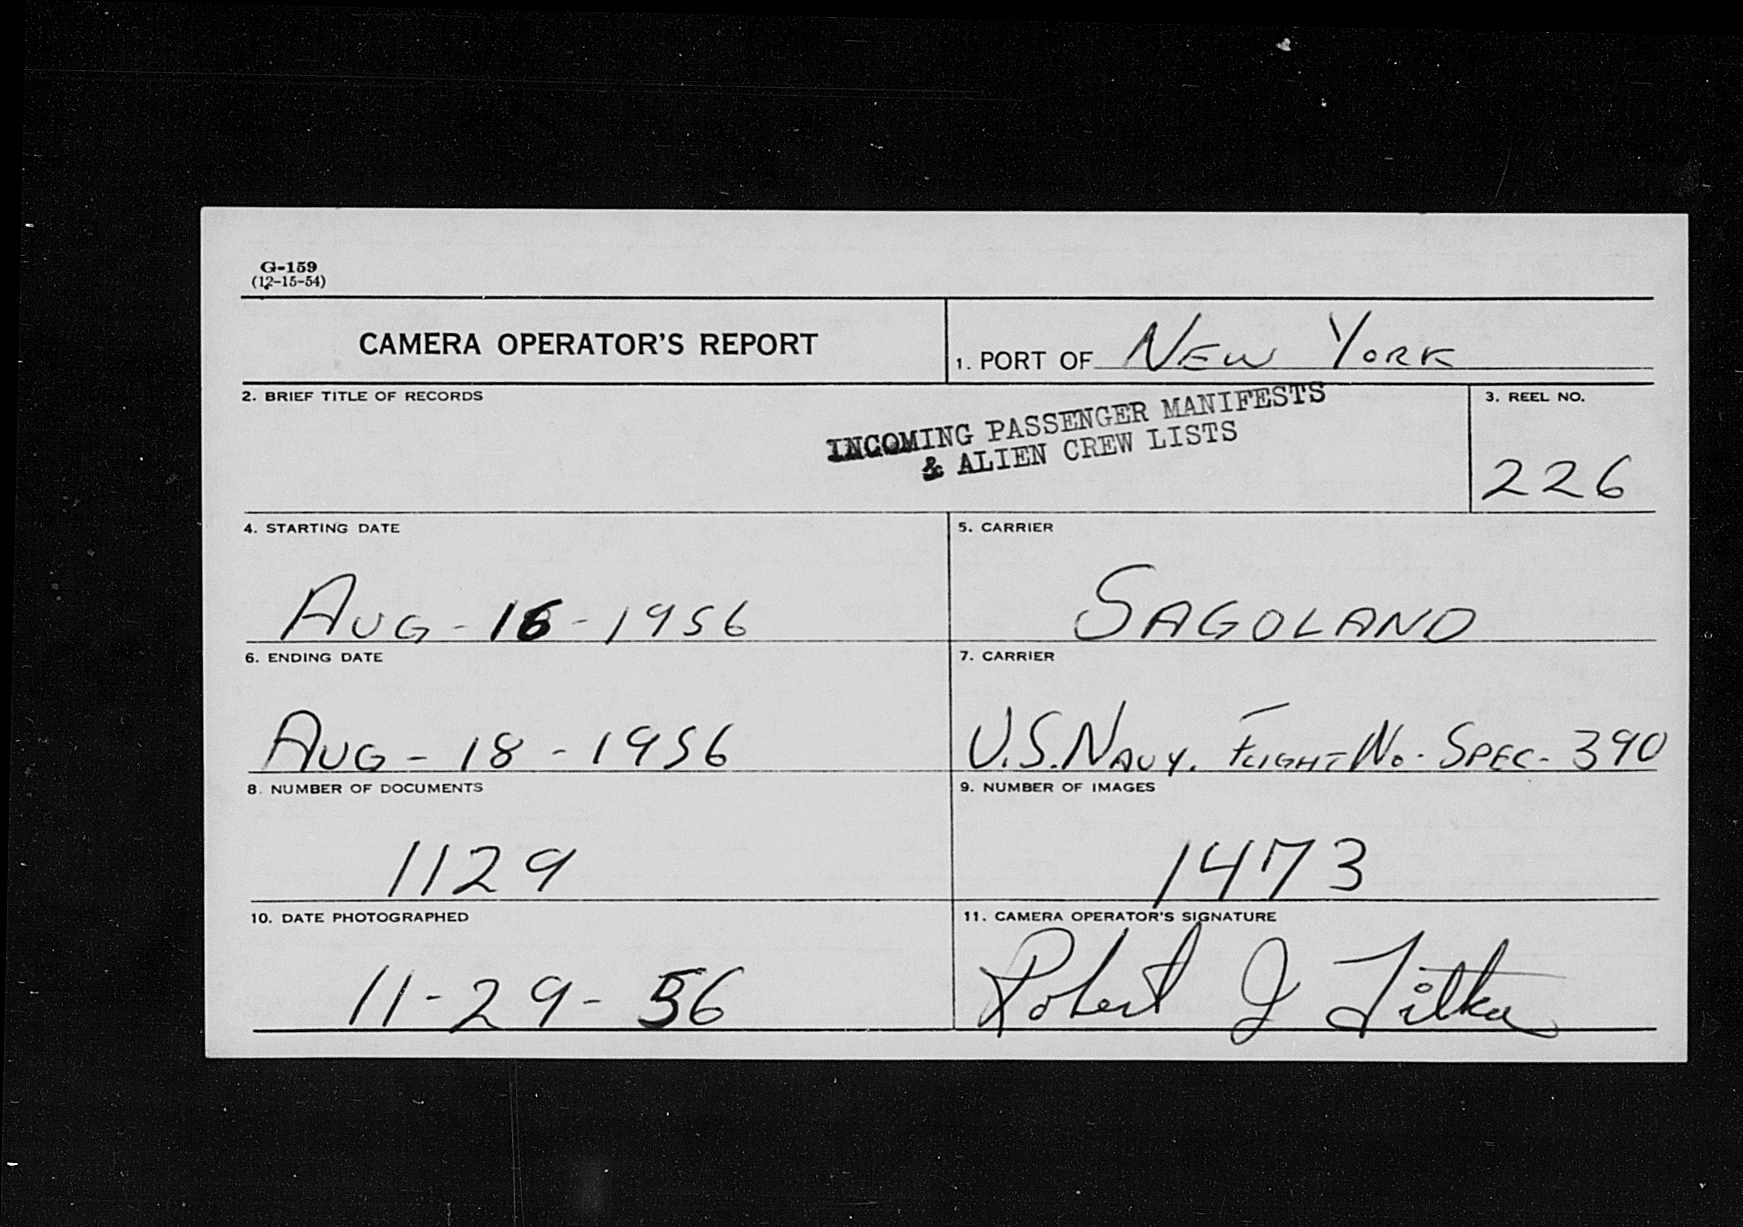 G-159
(12-15-54)
CAMERA OPERATOR'S REPORT
1. PORT OF NEW YORK
2. BRIEF TITLE OF RECORDS
INCOMING PASSENGER MANIFESTS
& ALIEN CREW LISTS
3. REEL NO.
226
4. STARTING DATE
AUG-16-1956
5. CARRIER
SAGOLAND
6. ENDING DATE
AUG-18-1956
7. CARRIER
U.S. NAVY. FLIGHT NO. SPEC-390
8. NUMBER OF DOCUMENTS
1129
9. NUMBER OF IMAGES
1473
10. DATE PHOTOGRAPHED
11-29-56
11. CAMERA OPERATOR'S SIGNATURE
Robert J